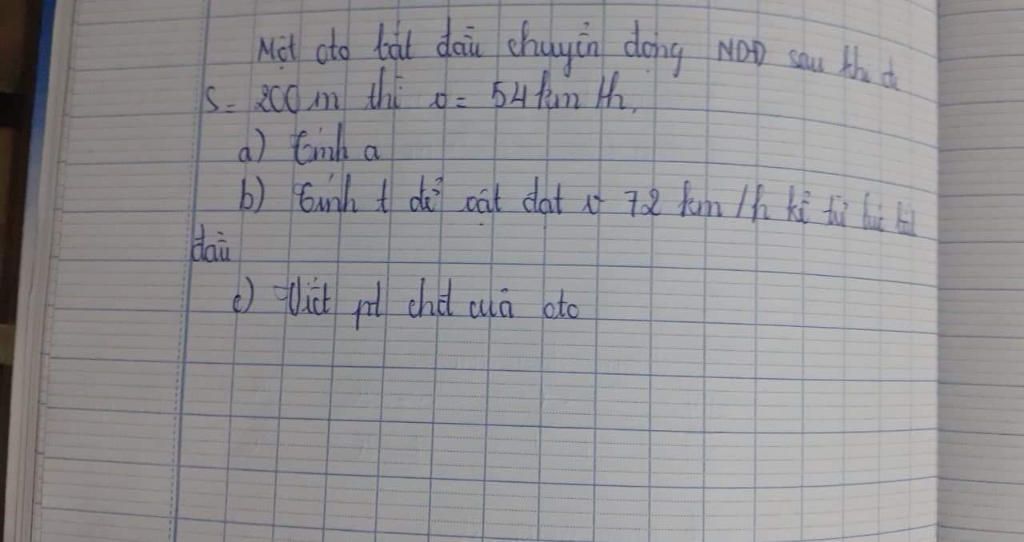 Một oto bắt đầu chuyển động NDĐ sau
S = 200 m thì v = 54 km/h.
a) tính a
b) tính t để vật đạt v 72 km/h kể từ
đầu
c) Viết pt chđ của oto